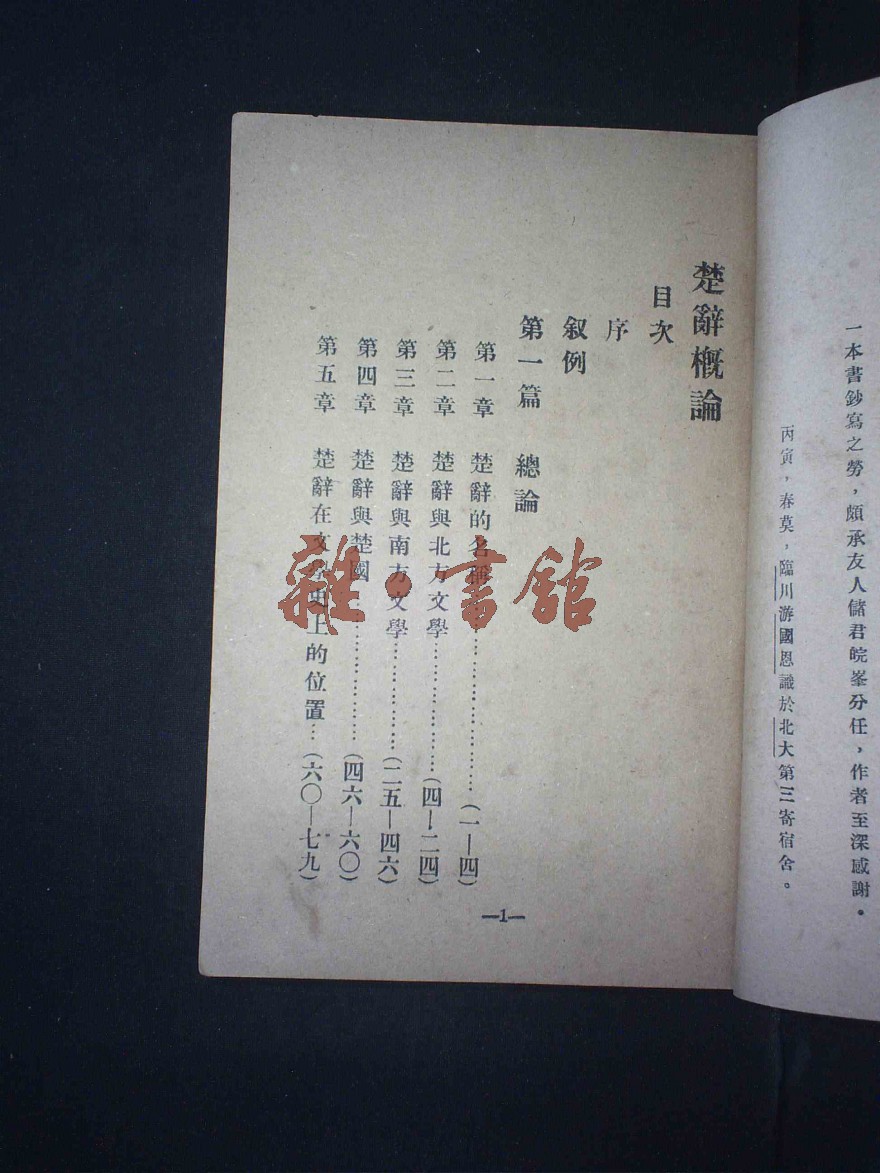 一本書鈔寫之勞，頗承友人儲君皖峯分任，作者至深感謝。
丙寅，春莫，臨川游國恩識於北大第三寄宿舍。
楚辭概論
目次
序
叙例
第一篇　總論
第一章　楚辭的名稱……………………(一—四)
第二章　楚辭與北方文學………………(四—二四)
第三章　楚辭與南方文學……………(二五—四六)
第四章　楚辭與楚國…………………(四六—六〇)
第五章　楚辭在文學史上的位置…(六〇—七九)
—1—
雜·書館